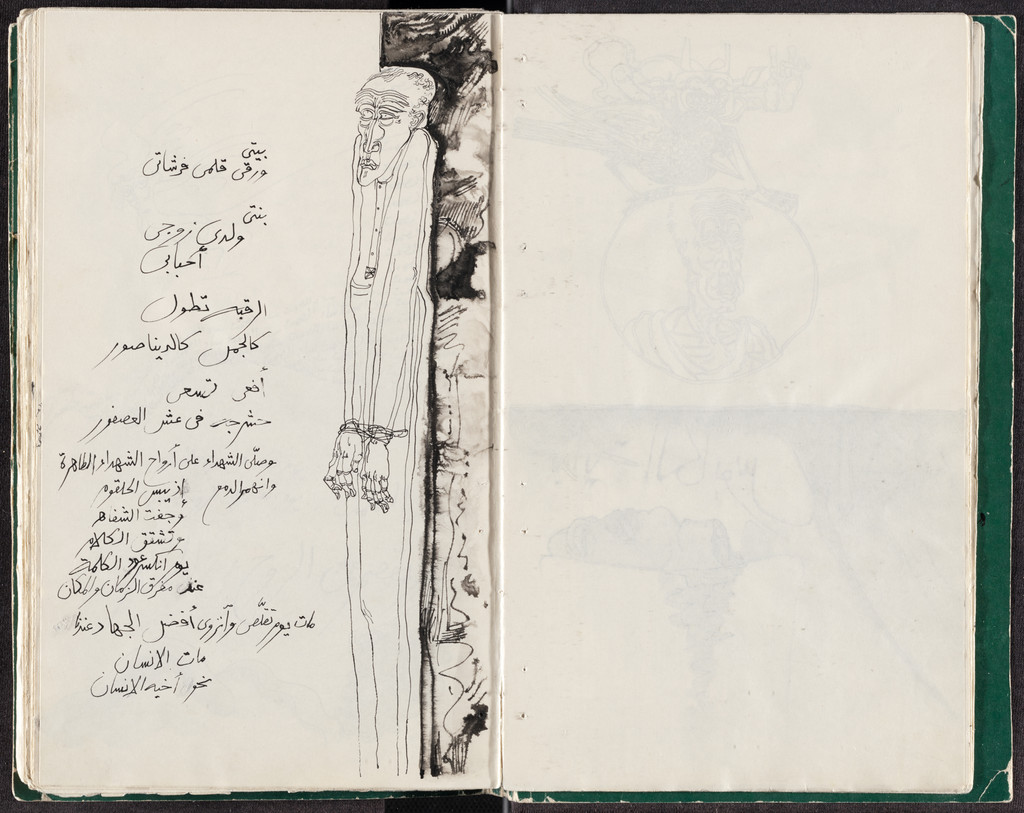 بيتى
ورقى قلمى فرشاتى
بنتى
ولدى زوجى
أحبابى
الرقبه تطول
كالجمل كالديناصور
أفعى تسعى
حشرجه فى عش العصفور
وصلى الشهداء على أرواح الشهداء الطاهرة
وانهمر الدمع إذ يبس الحلقوم
وجفت الشفاه
وتشقق الكلام
يوم انكسر عود الكلمة
عند مفرق الزمان والمكان
مات يوم تقلص وانزوى أفضل الجهاد عندنا
مات الانسان
نحو أخيه الانسان